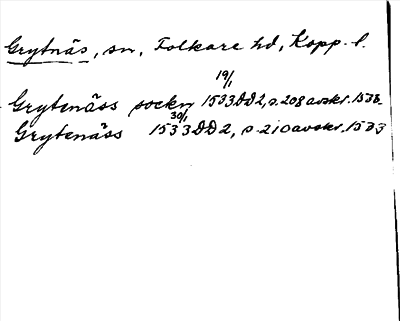 Grytnäs, sn, Folkare hd, Kopp. l.
19/1
Grytenäss sockn 1533 DD2, s. 208 avskr. 1538.
30/1
Grytenäss 1533 DD 2, s. 210 avskr. 1533